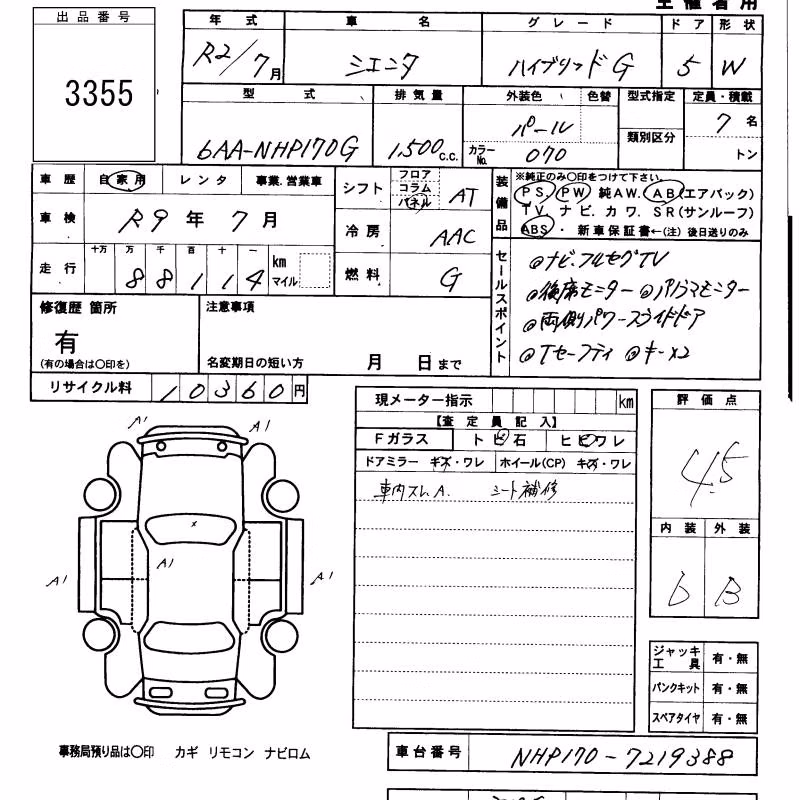 主催者用
出品番号
3355
年式 車名 グレード ドア 形状
R2/7月 シエンタ ハイブリッドG 5 W
型式 排気量 外装色 色替 型式指定 定員・積載
6AA-NHP170G 1,500c.c. パール 類別区分 7名
カラーNo. 070 トン
車歴 自家用 レンタ 事業.営業車
車検 R9年7月
走行 十万 万 千 百 十 一 km マイル
88114
シフト フロア コラム パネル AT
冷房 AAC
燃料 G
装備品 ※純正のみ○印をつけて下さい。
PS PW 純AW. AB(エアバック)
TV. ナビ. カワ. SR(サンルーフ)
ABS・新車保証書←(注)後日送りのみ
セールスポイント
◎ナビ.フルセグTV
◎後席モニター ◎パノラマモニター
◎両側パワースライドドア
◎Tセーフティ ◎キー×2
修復歴 箇所
有
(有の場合は○印を)
注意事項
名変期日の短い方 月 日まで
リサイクル料 10360円
現メーター指示 km
【査定員記入】
Fガラス トビ石 ヒビワレ
ドアミラー キズ・ワレ ホイール(CP) キズ・ワレ
車内スレA. シート補修
評価点
4.5
内装 外装
b B
A1 A1
x
A1
A1 A1
ジャッキ工具 有・無
パンクキット 有・無
スペアタイヤ 有・無
事務局預り品は○印 カギ リモコン ナビロム
車台番号 NHP170-7219388